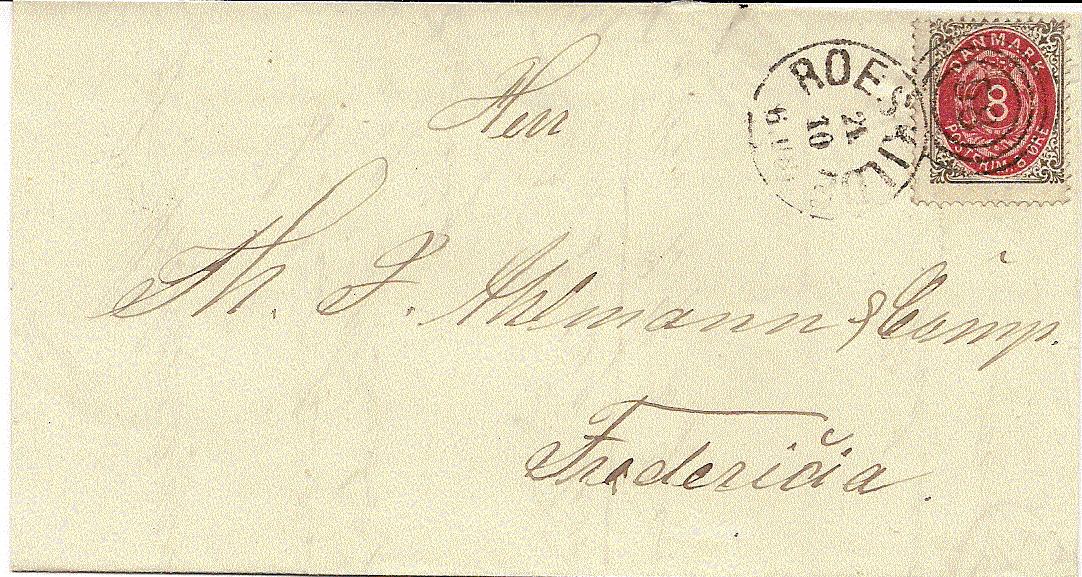 Herr
Th. S. Ahlmann & Comp.
Fredericia.
ROESKILDE
24
10
DANMARK
8
POST FRIM. 8 ØRE